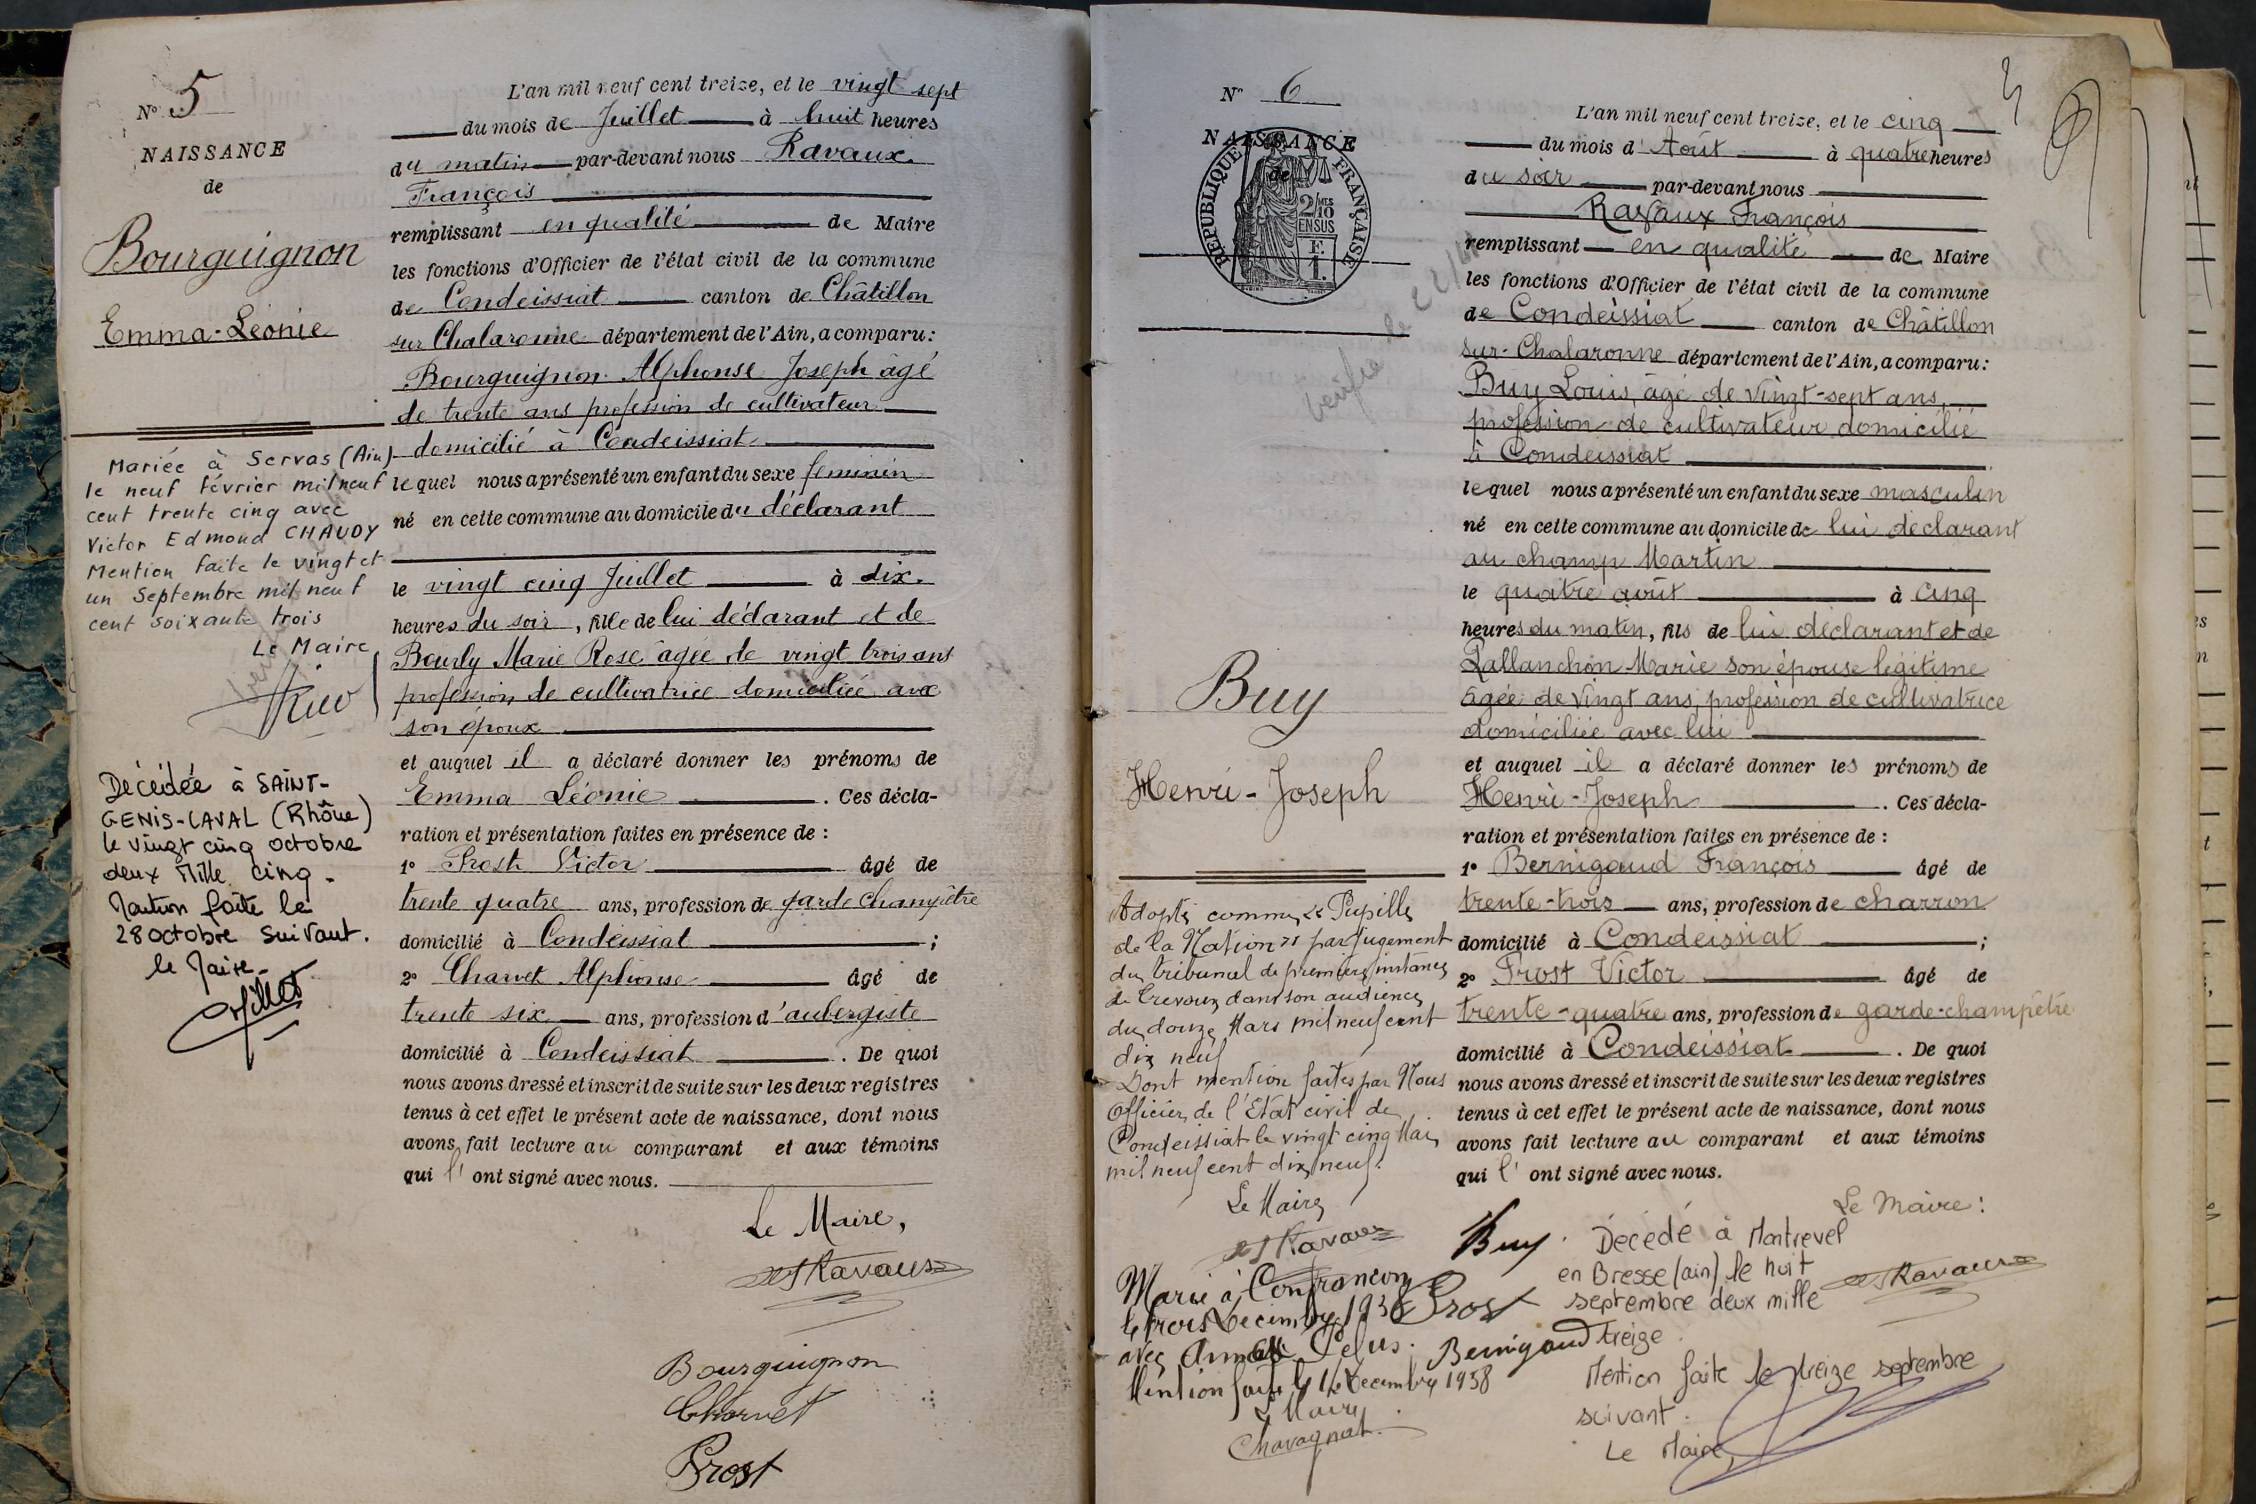 N° 5
NAISSANCE
de
Bourguignon
Emma-Léonie
Mariée à Servas (Ain)
le neuf février mil neuf
cent trente cinq avec
Victor Edmond CHAUDY
Mention faite le vingt et
un Septembre mil neuf
cent soixante trois
Le Maire
Décédée à SAINT-
GENIS-LAVAL (Rhône)
le vingt cinq octobre
deux Mille cinq.
Mention faite le
28 octobre suivant.
le Maire.
L'an mil neuf cent treize, et le vingt sept
du mois de Juillet à huit heures
du matin par-devant nous Ravaux
François
remplissant en qualité de Maire
les fonctions d'Officier de l'état civil de la commune
de Condeissiat canton de Châtillon
sur Chalaronne département de l'Ain, a comparu:
Bourguignon Alphonse Joseph âgé
de trente ans profession de cultivateur
domicilié à Condeissiat
lequel nous a présenté un enfant du sexe feminin
né en cette commune au domicile du déclarant
le vingt cinq Juillet à dix
heures du soir, fille de lui déclarant et de
Bourly Marie Rose âgée de vingt trois ans
profession de cultivatrice domiciliée avec
son époux
et auquel il a déclaré donner les prénoms de
Emma Léonie. Ces décla-
ration et présentation faites en présence de :
1° Prost Victor âgé de
trente quatre ans, profession de garde champêtre
domicilié à Condeissiat ;
2° Charvet Alphonse âgé de
trente six ans, profession d'aubergiste
domicilié à Condeissiat. De quoi
nous avons dressé et inscrit de suite sur les deux registres
tenus à cet effet le présent acte de naissance, dont nous
avons fait lecture au comparant et aux témoins
qui l' ont signé avec nous.
Le Maire,
Ravaux
Bourguignon
Charvet
Prost
N° 6
NAISSANCE
de
RÉPUBLIQUE FRANÇAISE
2/10 MES
EN SUS
F.
1.
Buy
Henri-Joseph
Adopté comme « Pupille
de la Nation » par jugement
du tribunal de première instance
de Trevoux dans son audience
du douze Mars mil neuf cent
dix neuf
Dont mention faite par Nous
Officier de l'Etat civil de
Condeissiat le vingt cinq Mars
mil neuf cent dix neuf.
Le Maire
Ravaux
Marié à Confrancon
le trois Décembre
avec
Mention faite le Decembre 1958
Le Maire
Chavagnat
L'an mil neuf cent treize, et le cinq
du mois d'Août à quatre heures
du soir par-devant nous
Ravaux François
remplissant en qualité de Maire
les fonctions d'Officier de l'état civil de la commune
de Condeissiat canton de Châtillon
sur-Chalaronne département de l'Ain, a comparu:
Buy Louis, âgé de vingt-sept ans,
profession de cultivateur domicilié
à Condeissiat
lequel nous a présenté un enfant du sexe masculin
né en cette commune au domicile de lui déclarant
au champ Martin
le quatre août à cinq
heures du matin, fils de lui déclarant et de
Pallanchon Marie son épouse légitime
âgée de vingt ans, profession de cultivatrice
domiciliée avec lui
et auquel il a déclaré donner les prénoms de
Henri-Joseph. Ces décla-
ration et présentation faites en présence de :
1° Bernigaud François âgé de
trente-trois ans, profession de charron
domicilié à Condeissiat ;
2° Prost Victor âgé de
trente-quatre ans, profession de garde-champêtre
domicilié à Condeissiat. De quoi
nous avons dressé et inscrit de suite sur les deux registres
tenus à cet effet le présent acte de naissance, dont nous
avons fait lecture au comparant et aux témoins
qui l' ont signé avec nous.
Le Maire:
Ravaux
Buy
Prost
Bernigaud
Décédé à Montrevel
en Bresse (ain) le huit
septembre deux mille
treize.
Mention faite le treize septembre
suivant.
Le Maire,